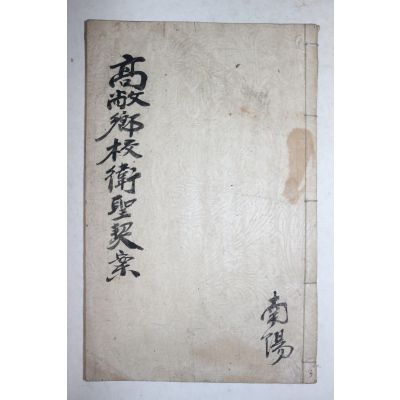 高敞鄕校衛聖契案
南陽